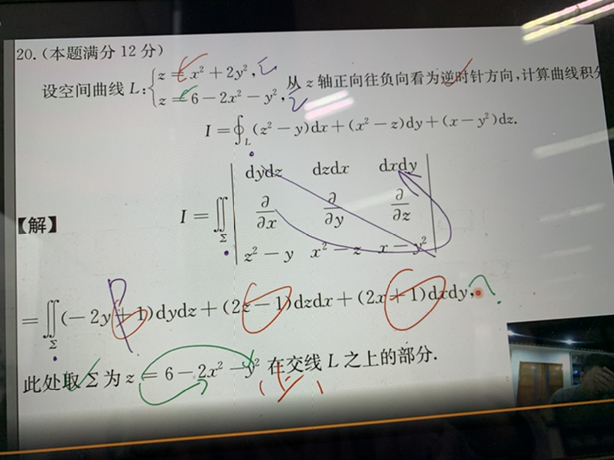 20.(本题满分 12 分)
设空间曲线 L:{z = x² + 2y², z = 6 − 2x² − y², 从 z 轴正向往负向看为逆时针方向,计算曲线积分
I = ∮_L (z² − y)dx + (x² − z)dy + (x − y²)dz.
dydz dzdx dxdy
【解】 I = ∬_Σ | ∂/∂x ∂/∂y ∂/∂z |
z² − y x² − z x − y²
= ∬_Σ (−2y + 1)dydz + (2z − 1)dzdx + (2x + 1)dxdy,
此处取 Σ 为 z = 6 − 2x² − y² 在交线 L 之上的部分.